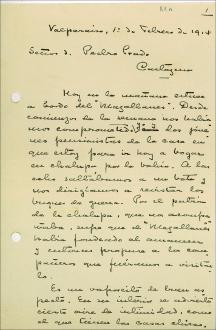 Valparaiso, 1º de Febrero de 1914
Señor d. Pedro Prado
Cartagena
Hoy en la mañana estuve
a bordo del "Magallanes". Desde
comienzos de la semana nos habia
mos comprometido los jóve
nes pensionistas de la casa en
que estoy para ir hoy a bogar
en chalupa por la bahía. A las
ocho saltábamos a un bote y
nos dirigíamos a revistar los
buques de guerra. Por el patrón
de la chalupa, que nos acompa
ñaba, supe que el "Magallanes"
había fondeado al amanecer
y entonces propuse a los com
pañeros que fuéramos a visitar
lo.
Es un vaporcito de buen as
pecto. En su interior se advierte
cierto aire de intimidad, como
el que tienen las casas chicas.